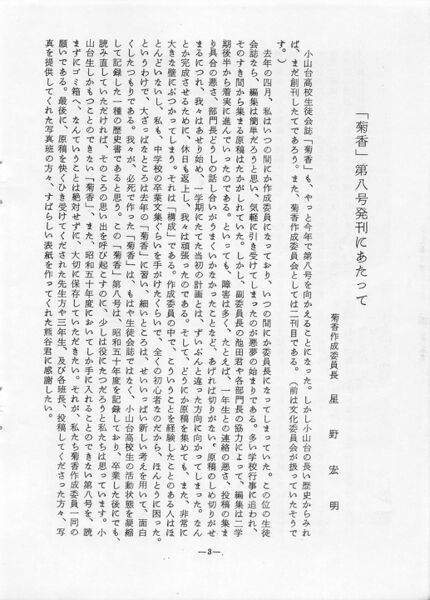 「菊香」第八号発刊にあたって
菊香作成委員長　星野宏明
小山台高校生徒会誌「菊香」も、やっと今年で第八号を向かえることになった。しかし小山台の長い歴史からみれ
ば、まだ創刊したてであろう。また、菊香作成委員会としては二刊目である。（前は文化委員会が扱っていたそうで
す。）
去年の四月、私はいつの間にか作成委員になっており、いつの間にか委員長になってしまっていた。この位の生徒
会誌なら、編集は簡単だろうと思い、気軽に引き受けてしまったのが悪夢の始まりである。多い学校行事に追われ、
そのすき間から集まる原稿はたかがしれていた。しかし、副委員長の池田君や各部門長の協力によって、編集は二学
期後半から着実に進んでいったのである。といっても、障害は多く、たとえば、一年生との連絡の悪さ、投稿の集ま
り具合の悪さ、部門長どうしの話し合いがうまくいかなかったことなど、あげれば切りがない。原稿のしめ切りがせ
まるにつれ、我々はあせり始め、一学期にたてた当初の計画とは、ずいぶんと違った方向に向かってしまった。なん
とか完成させるために、休日も返上し、我々は頑張ったのである。そして、どうにか原稿を集めても、また、非常に
大きな壁にぶつかってしまう。それは「構成」である。作成委員の中で、こういうことを経験したことのある人はほ
とんどいないし、私も、中学校の卒業文集ぐらいを手がけたくらいで、全くの初心者なのだから、ほんとうに困った。
というわけで、大ざっぱなところは去年の「菊香」に習い、細いところは、せいいっぱい新しい考えを用いて、面白
くしたつもりである。我々が、必死で作った「菊香」は、もはや生徒会誌ではなく、小山台高校生の活動状態を凝縮
して記録した一種の歴史書であると思う。この「菊香」第八号は、昭和五十年度を記録しており、卒業した後にでも、
読み直していただければ、そのころの思い出を呼び起こすのに、少しは役にたつだろうと私たちは思っています。小
山台生しかもつことのできない「菊香」、また、昭和五十年度においてしか手に入れることのできない第八号を、読
まずにゴミ箱へ、なんていうことは絶対せずに、大切に保存していただきたい。それが、私たち菊香作成委員一同の
願いである。最後に、原稿を快くひき受けてくだされた先生方や三年生、及び各班長、投稿してくださった方々、写
真を提供してくれた写真班の方々、すばらしい表紙を作ってくれた熊谷君に感謝したい。
—3—